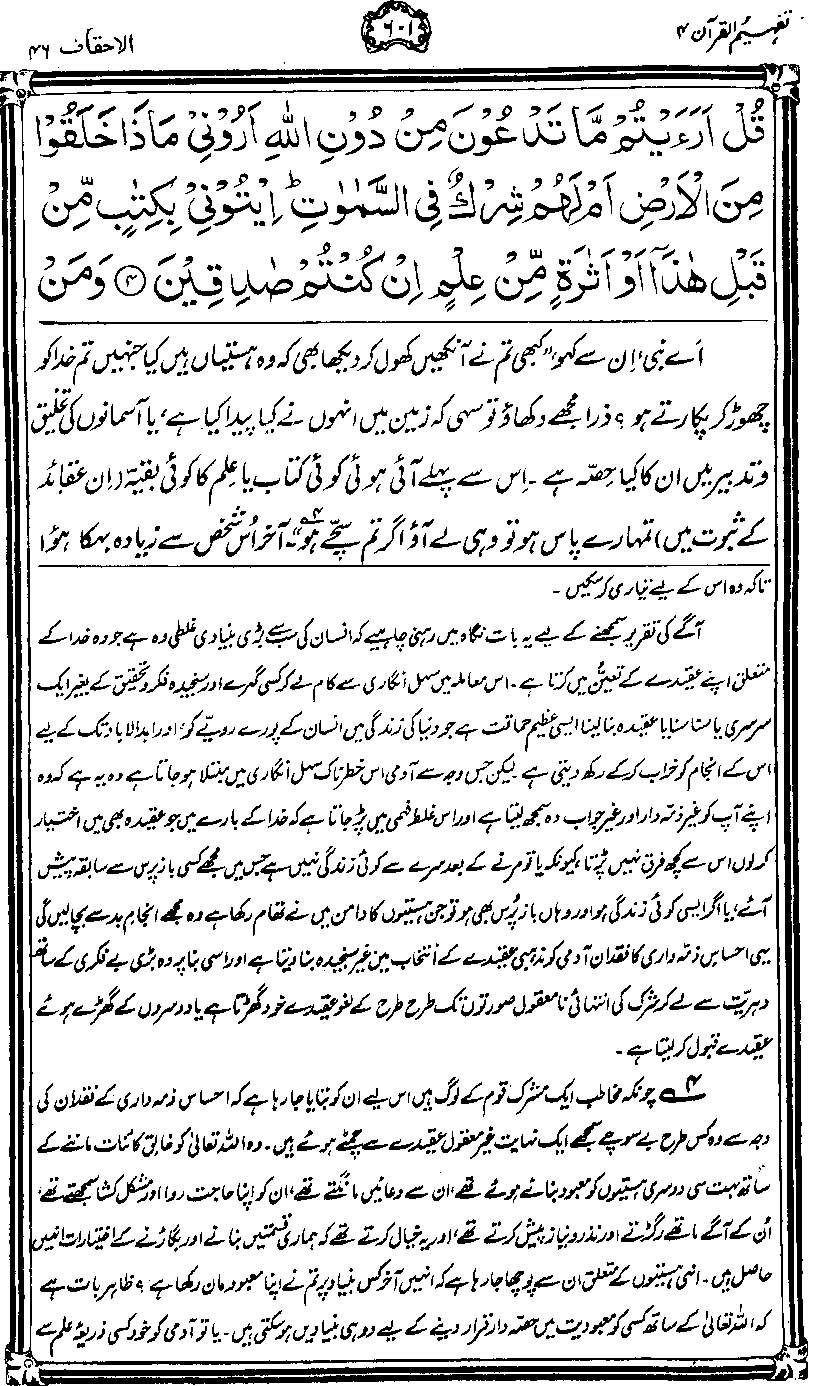 تفہیم القرآن ۴
۶۰۱
الاحقاف ۴۶
قُلْ اَرَءَيْتُمْ مَّا تَدْعُوْنَ مِنْ دُوْنِ اللّٰهِ اَرُوْنِيْ مَاذَا خَلَقُوْا
مِنَ الْاَرْضِ اَمْ لَهُمْ شِرْكٌ فِي السَّمٰوٰتِ ؕ اِيْتُوْنِيْ بِكِتٰبٍ مِّنْ
قَبْلِ هٰذَاۤ اَوْ اَثٰرَةٍ مِّنْ عِلْمٍ اِنْ كُنْتُمْ صٰدِقِيْنَ ﴿۴﴾ وَمَنْ
اے نبیؐ، اِن سے کہو، ”کبھی تم نے آنکھیں کھول کر دیکھا بھی کہ وہ ہستیاں ہیں کیا جنہیں تم خدا کو
چھوڑ کر پکارتے ہو؟ ذرا مجھے دکھاؤ تو سہی کہ زمین میں انہوں نے کیا پیدا کیا ہے، یا آسمانوں کی تخلیق
و تدبیر میں ان کا کیا حصّہ ہے۔ اِس سے پہلے آئی ہوئی کوئی کتاب یا علم کا کوئی بقیّہ (اِن عقائد
کے ثبوت میں) تمہارے پاس ہو تو وہی لے آؤ اگر تم سچّے ہو“۔۴ آخر اُس شخص سے زیادہ بہکا ہؤا
تاکہ وہ اس کے لیے تیاری کر سکیں۔
آگے کی تقریر سمجھنے کے لیے یہ بات نگاہ میں رہنی چاہیے کہ انسان کی سب سے بڑی بنیادی غلطی وہ ہے جو وہ خدا کے
متعلق اپنے عقیدے کے تعیّن میں کرتا ہے۔ اس معاملہ میں سہل انگاری سے کام لے کر کسی گہرے اور سنجیدہ فکر و تحقیق کے بغیر ایک
سرسری یا سنا سنایا عقیدہ بنا لینا ایسی عظیم حماقت ہے جو دنیا کی زندگی میں انسان کے پورے رویّے کو، اور ابدالآباد تک کے لیے
اس کے انجام کو خراب کر کے رکھ دیتی ہے۔ لیکن جس وجہ سے آدمی اس خطرناک سہل انگاری میں مبتلا ہو جاتا ہے وہ یہ ہے کہ وہ
اپنے آپ کو غیر ذمّہ دار اور غیر جواب دہ سمجھ لیتا ہے اور اس غلط فہمی میں پڑ جاتا ہے کہ خدا کے بارے میں جو عقیدہ بھی میں اختیار
کر لوں اس سے کچھ فرق نہیں پڑتا، کیونکہ یا تو مرنے کے بعد سرے سے کوئی زندگی نہیں ہے جس میں مجھے کسی باز پرس سے سابقہ پیش
آئے، یا اگر ایسی کوئی زندگی ہو اور وہاں باز پُرس بھی ہو تو جن ہستیوں کا دامن میں نے تھام رکھا ہے وہ مجھے انجامِ بد سے بچا لیں گی۔
یہی احساسِ ذمّہ داری کا فقدان آدمی کو مذہبی عقیدے کے انتخاب میں غیر سنجیدہ بنا دیتا ہے اور اسی بنا پر وہ بڑی بے فکری کے ساتھ
دہریّت سے لے کر شرک کی انتہائی نامعقول صورتوں تک طرح طرح کے لغو عقیدے خود گھڑتا ہے یا دوسروں کے گھڑے ہوئے
عقیدے قبول کر لیتا ہے۔
۴ چونکہ مخاطب ایک مشرک قوم کے لوگ ہیں اس لیے ان کو بتایا جا رہا ہے کہ احساسِ ذمّہ داری کے فقدان کی
وجہ سے وہ کس طرح بے سوچے سمجھے ایک نہایت غیر معقول عقیدے سے چمٹے ہوئے ہیں۔ وہ اللہ تعالیٰ کو خالقِ کائنات ماننے کے
ساتھ بہت سی دوسری ہستیوں کو معبود بنائے ہوئے تھے، ان سے دعائیں مانگتے تھے، ان کو اپنا حاجت روا اور مشکل کشا سمجھتے تھے،
اُن کے آگے ماتھے رگڑتے اور نذر و نیاز پیش کرتے تھے، اور یہ خیال کرتے تھے کہ ہماری قسمتیں بنانے اور بگاڑنے کے اختیارات انہیں
حاصل ہیں۔ انہی ہستیوں کے متعلق ان سے پوچھا جا رہا ہے کہ انہیں آخر کس بنیاد پر تم نے اپنا معبود مان رکھا ہے؟ ظاہر بات ہے
کہ اللہ تعالیٰ کے ساتھ کسی کو معبودیت میں حصّہ دار قرار دینے کے لیے دو ہی بنیادیں ہو سکتی ہیں۔ یا تو آدمی کو خود کسی ذریعۂ علم سے